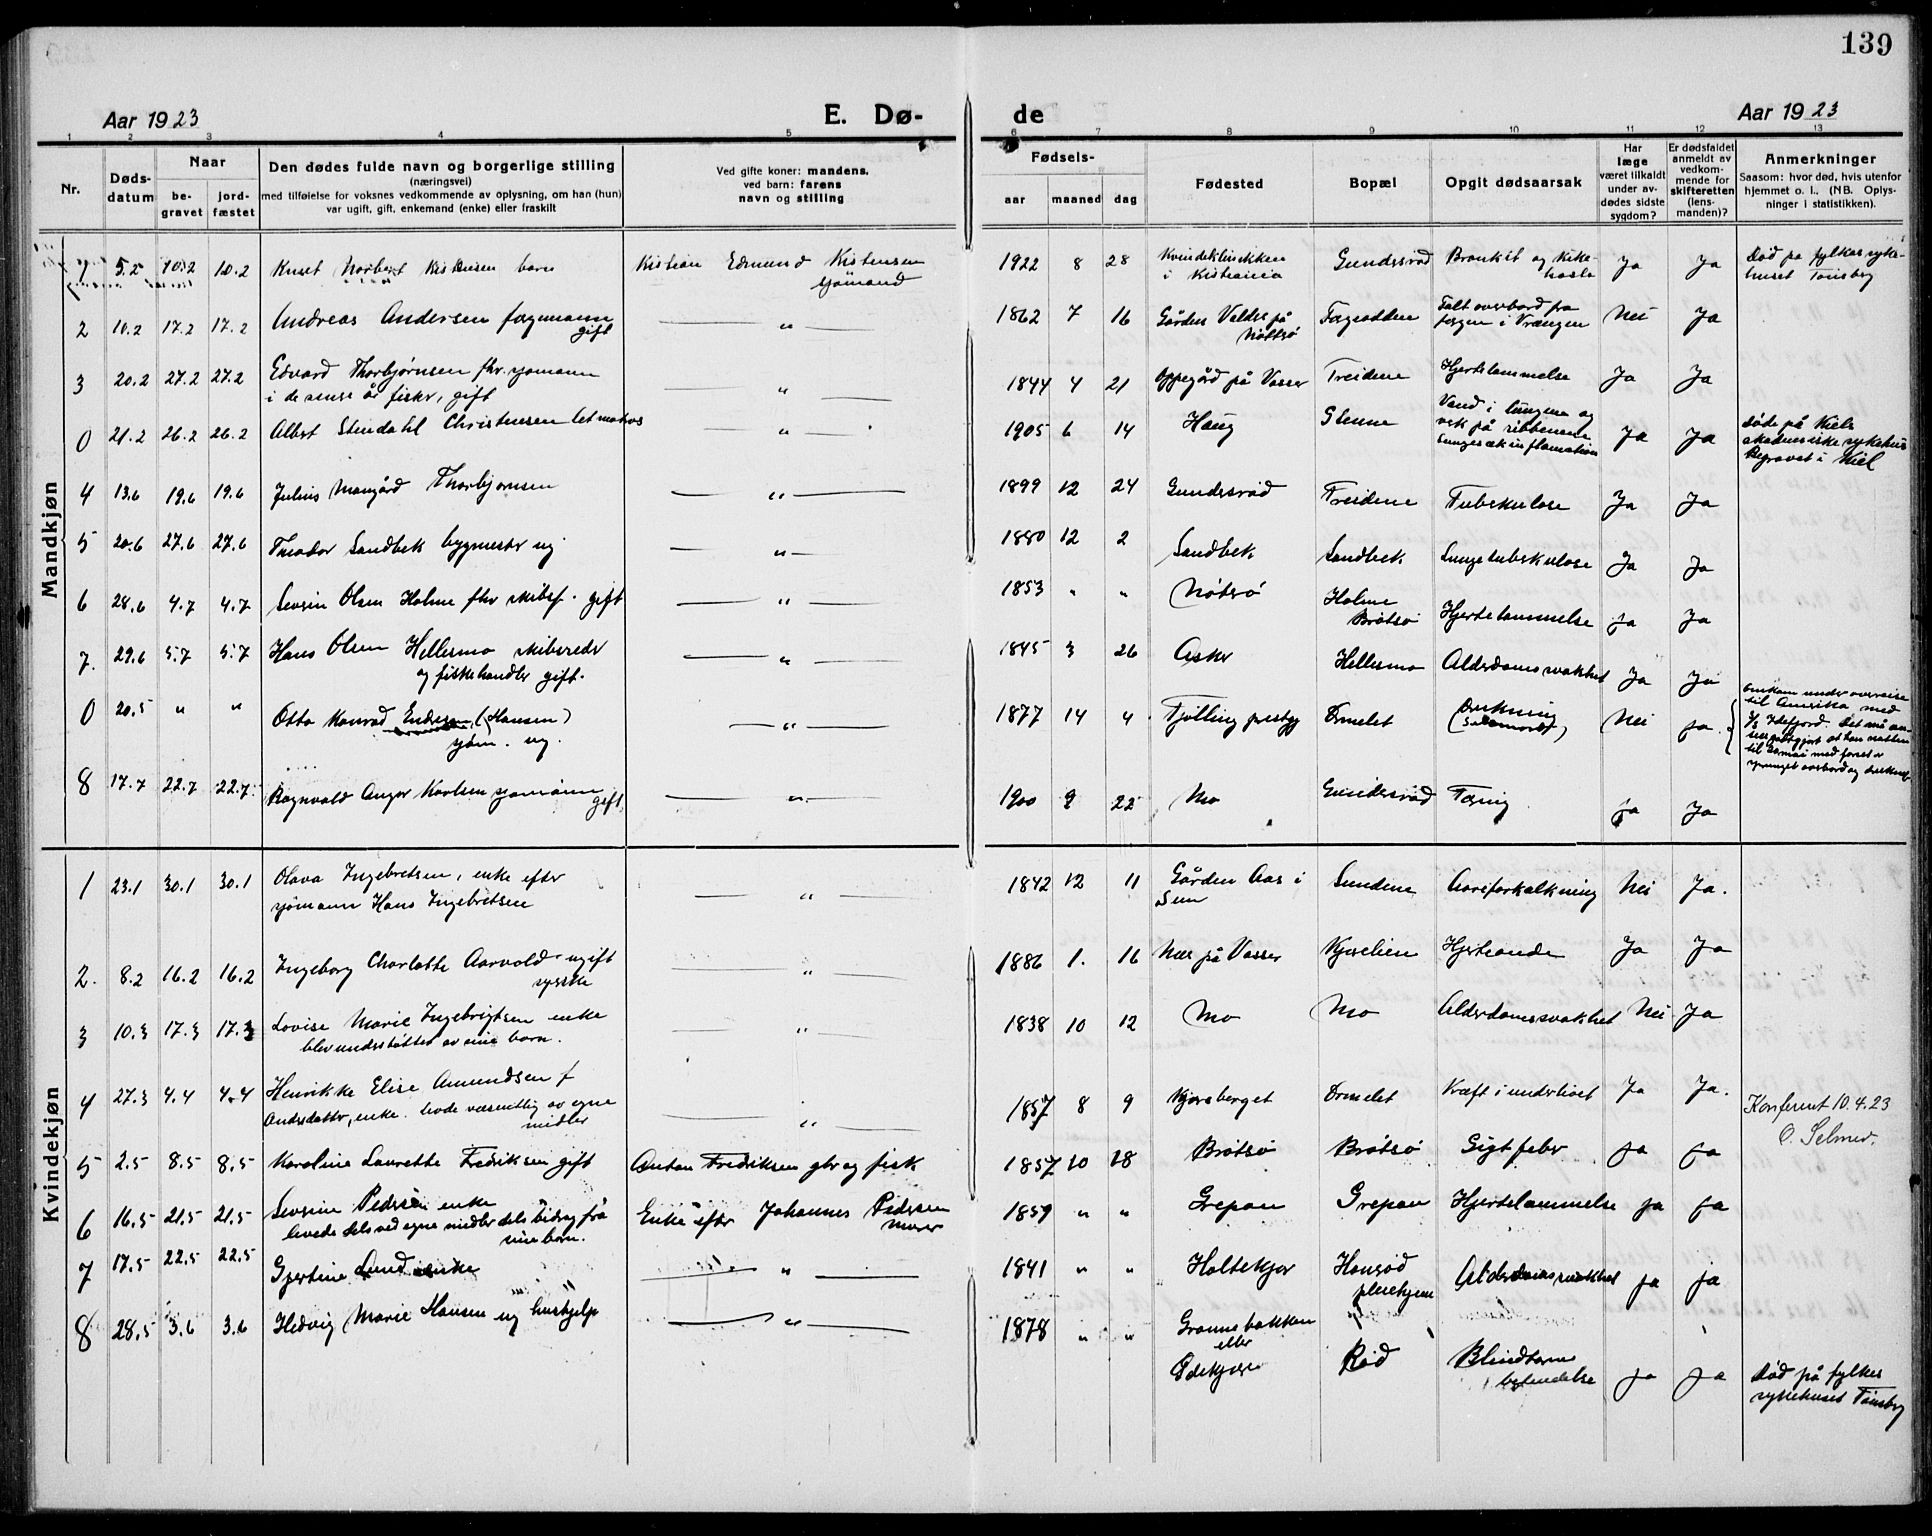 139
Aar 1923 E. Dø- de Aar 1923
1 2 3 4 5 6 7 8 9 10 11 12 13
Nr. Døds-datum Naar be-gravet jord-fæstet
Den dødes fulde navn og borgerlige stilling
(næringsvei)
med tilføielse for voksnes vedkommende av oplysning, om han (hun)
var ugift, gift, enkemand (enke) eller fraskilt
Ved gifte koner: mandens.
ved barn: farens
navn og stilling
Fødsels- aar maaned dag
Fødested
Bopæl
Opgit dødsaarsak
Har læge været tilkaldt under av-dødes sidste sygdom?
Er dødsfaldet anmeldt av vedkom-mende for skifteretten (lens-manden)?
Anmerkninger
Saasom: hvor død, hvis utenfor
hjemmet o. l., (NB. Oplys-
ninger i statistikken).
Mandkjøn
1 5.2 10.2 10.2 Knut Norbert Kistensen barn Kistian Edmund Kistensen sjømand 1922 8 28 Kvindeklinikken i Kistiania Gundersrød Bronkit og kikehoste Ja Ja Død på fylkessykehuset Tønsberg
2 10.2 17.2 17.2 Andreas Andersen fergemann gift " 1862 7 16 Gården Velder på Nøttrø Fargeodden Falt overbord fra fergen i Vrængen Nei Ja
3 20.2 27.2 27.2 Edvard Thorbjørnsen fhv. sjømann
i de senere år fisker, gift " 1844 4 21 Oppegård på Vasser Treidene Hjertelammelse Ja Ja
0 21.2 26.2 26.2 Albert Stendahl Christensen letmatros " 1905 6 14 Haug Glenne Vand i lungene og vek på ribbenene Lungesækinflamation Ja Ja Døde på Kiels akademiske sykehus Begravet i Kiel
4 13.6 19.6 19.6 Julius Mangård Thorbjørnsen " 1899 12 24 Gundersrød Treidene Tuberkulose Ja Ja
5 20.6 27.6 27.6 Theodor Sandbek bygmester ug " 1880 12 2 Sandbek Sandbek Lungetuberkulose Ja Ja
6 28.6 4.7 4.7 Severin Olsen Holme fhv skibsf. gift " 1853 " " Nøtrø Holme Brøtsø Hjertelammelse Ja Ja
7. 29.6 5.7 5.7 Hans Olsen Hellesmo skibsreder
og fiskehandler gift. " 1845 3 26 Asker Hellesmo Alderdomssvakhet Ja Ja
0 20.5 " " Otto Konrad Endresen (Hansen)
sjøm. ug. " 1877 14 4 Tjølling prestgj Ormelet Drukning (Selvmord) Nei Ja Omkom under overreise til Amerika med D/S Idefjord.
8 17.7 22.7 22.7 Ragnvald Anger Karlsen sjømann gift " 1900 9 22 Mo Gundersrød Tæring Ja Ja
Kvindekjøn
1 23.1 30.1 30.1 Olava Ingebretsen, enke efter
sjømann Hans Ingebretsen " 1842 12 11 Gården Aas i Sem Sundene Aareforkalkning Nei Ja.
2. 8.2 16.2 16.2 Ingeborg Charlotte Aarvold ugift syerske " 1886 1. 16 Nes på Vasser Kjærelien Hjerteonde Ja Ja
3 10.3 17.3 17.3 Lovise Marie Ingebrigtsen enke
blev understøttet av sine barn. " 1838 10 12 Mo Mo Alderdomssvakhet Nei Ja
4 27.3 4.4 4.4 Henrikke Elise Amundsen f
Andersdatter, enke. levde væsentlig av egne midler " 1857 8 9 Kjørsberget Ormelet Kræft i underlivet Ja Ja. Konferert 10.4.23
O. Selmer.
5 2.5 8.5 8.5 Karoline Laurette Fredriksen gift Anton Fredriksen gbr og fisk 1857 10 18 Brøtsø Brøtsø Gigtfeber Ja Ja
6 16.5 21.5 21.5 Severine Pedersen enke
levede dels ved egne midler dels bidrag fra sine barn. Enke efter Johannes Pedersen murer 1859 " " Grepan Grepan Hjertelammelse Ja Ja
7 17.5 22.5 22.5 Gjertine Lund enke " 1841 " " Holtekjær Honsød pleiehjem Alderdomssvakhet Ja Ja
8 28.5 3.6 3.6 Hedvig Marie Hansen ug hushjelp " 1878 " " Grønnebakken eller Ødekjære Rød Blindtarmsbetendelse Ja Ja Død på fylkessykehuset Tønsberg